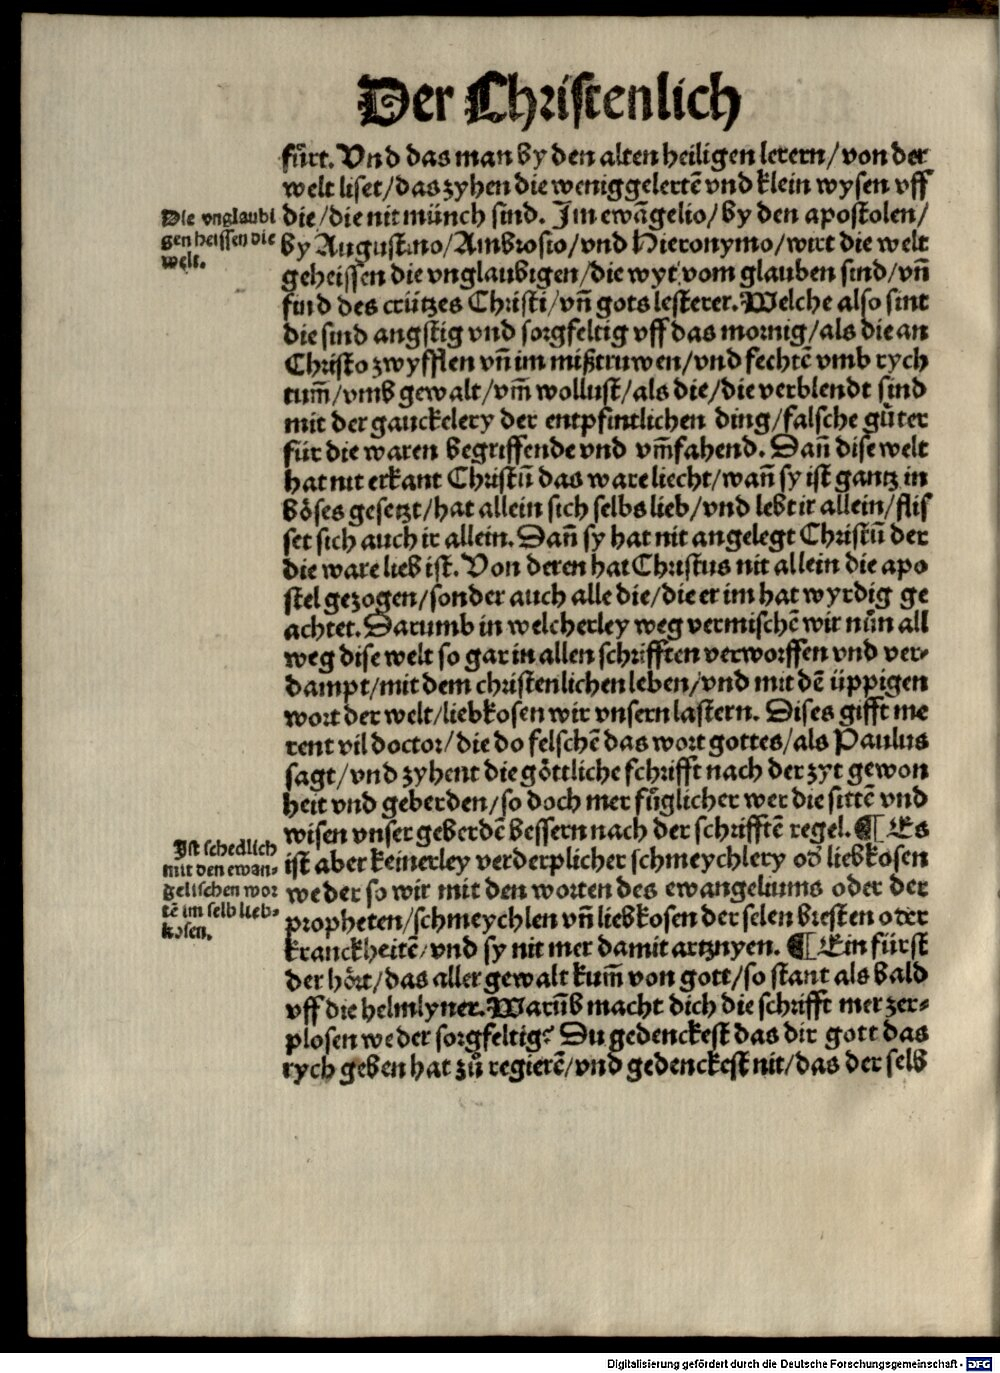 Der Christenlich
fürt. Vnd das man by den alten heiligen lerern/von der
welt liset/das zyhen die wenig gelertē vnd klein wysen vff
die/die nit münch sind. Im ewāgelio/by den apostolen/
by Augustino/Ambrosio/vnd Hieronymo/wirt die welt
geheissen die vnglaubigen/die wyt vom glauben sind/vn̄
find des crützes Christi/vn̄ gots lesterer. Welche also sint
die sind angstig vnd sorgfeltig vff das mornig/als die an
Christo zwyfflen vn̄ im mißtruwen/vnd fechtē vmb rych
tum̄/vmb gewalt/vm̄ wollust/als die/die verblendt sind
mit der gauckelery der entpfintlichen ding/falsche gůter
für die waren begriffende vnd vm̄fahend. Dan̄ dise welt
hat nit erkant Christū das ware liecht/wan̄ sy ist gantz in
böses gesetzt/hat allein sich selbs lieb/vnd lebt ir allein/flis
set sich auch ir allein. Dan̄ sy hat nit angelegt Christū der
die ware lieb ist. Von deren hat Christus nit allein die apo
stel gezogen/sonder auch alle die/die er im hat wyrdig ge
achtet. Darumb in welcherley weg vermischē wir nůn all
weg dise welt so gar in allen schrifften verworffen vnd ver-
dampt/mit dem christenlichen leben/vnd mit dē üppigen
wort der welt/liebkosen wir vnsern lastern. Dises gifft me
rent vil doctor/die do felschē das wort gottes/als Paulus
sagt/vnd zyhent die göttliche schrifft nach der zyt gewon
heit vnd geberden/so doch mer fůglicher wer die sittē vnd
wisen vnser geberdē bessern nach der schrifftē regel. ¶ Es
ist aber keinerley verderplicher schmeychlery od̄ liebkosen
weder so wir mit den worten des ewangeliums oder der
propheten/schmeychlen vn̄ liebkosen der selen bresten oder
kranckheitē/vnd sy nit mer damit artznyen. ¶ Ein fürst
der hört/das aller gewalt kum̄ von gott/so stant als bald
vff die helmlyner. Warūb macht dich die schrifft mer zer-
plosen weder sorgfeltig? Du gedenckest das dir gott das
rych geben hat zů regierē/vnd gedenckest nit/das der selb
Die vnglaubi
gen heissen die
welt.
Ist schedlich
mit den ewan-
gelischen wor
tē im selb lieb-
kosen.
Digitalisierung gefördert durch die Deutsche Forschungsgemeinschaft - DFG